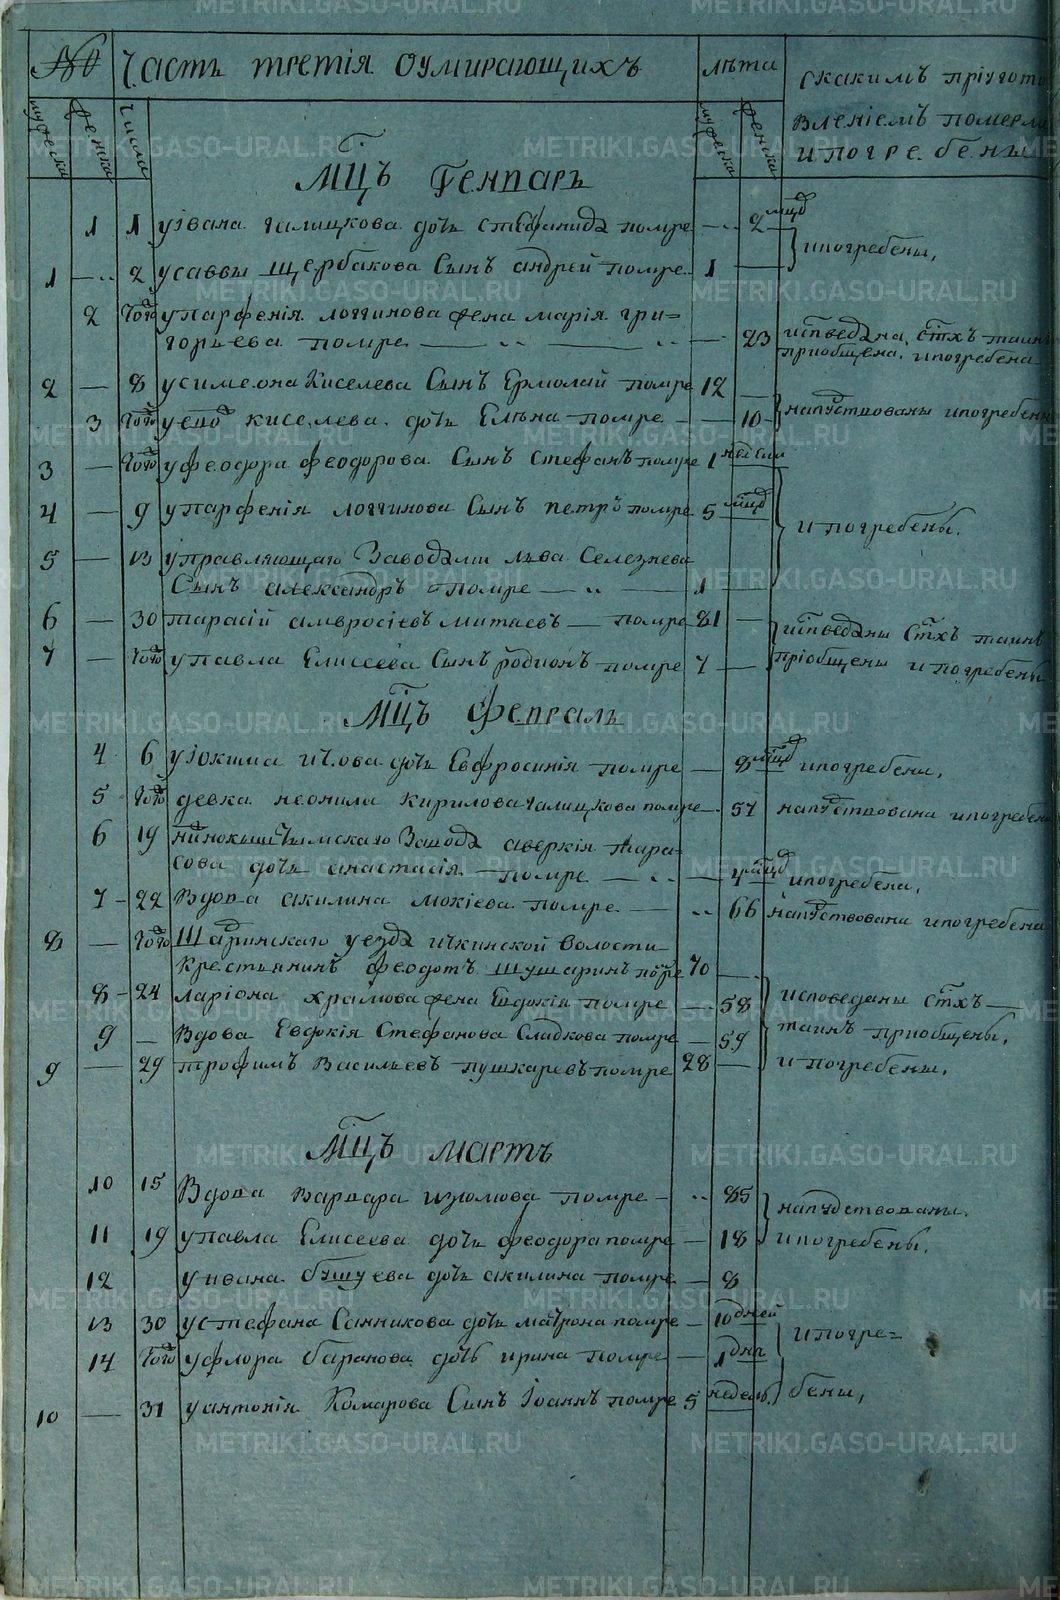 № Часть третія оумирающихъ лѣта скакимъ пріугото
мужеска женска числа мужеска женска вленіемъ померли
ипогребены
Мцъ Генваръ
1 1 уівана галицкова дочь стефанида помре 2 мцд
1 2 усаввы щербакова Сынъ андрей помре 1 ипогребены,
2 Того упарфенія логгинова жена марія гри=
горьева помре 23 исповедана, стхъ таинъ
приобщена, ипогребена
2 8 усимеона Киселева Сынъ Ермолай помре 12
3 Того киселева дочь Елѣна помре 10 напутствованы ипогребены
3 Того уфеодора феодорова Сынъ стефанъ помре 1 недели
4 9 упарфенія логгинова Сынъ петръ помре 5 мцд
ипогребены.
5 13 управляющаго Заводами льва Селезнева
Сынъ александръ помре 1
6 30 тарасій амвросіевъ митаевъ помре 81 исповеданы Стхъ таинъ
7 Того упавла Елисеева Сынъ родионъ помре 7 пріобщены ипогребены
Мцъ февраль
4 6 уіокима ичова дочь Евфросинія помре 8 мцд ипогребена,
5 Того девка неонила кирилова галицкова помре 57 напутствована ипогребена
6 19 завода аверкія тара-
сова дочь анастасія помре 4 мцд ипогребена,
7 22 Вдова акилина мокіева помре 66 напутствована ипогребена
8 Того уезда ичкинской волости
Крестьянинъ феодотъ шушаринъ помре 70
8 24 ларіона храмова жена Евдокія помре 58 исповеданы стхъ
9 Вдова Евдокія Стефанова Сладкова помре 59 таинъ приобщены,
9 29 трофимъ Васильевъ пушкаревъ помре 28 ипогребены,
Мцъ мартъ
10 15 Вдова варвара изюмова помре 85 напутствованы,
11 19 упавла Елисеева дочь феодора помре 18 ипогребены.
12 уивана бушуева дочь акилина помре 8
13 30 устефана Санникова дочь матрона помре 10 дней ипогре=
14 Того уфлора баранова дочь ирина помре 1 дня
10 31 уантонія Комарова Сынъ Іоаннъ помре 5 недель бены,
METRIKI.GASO-URAL.RU